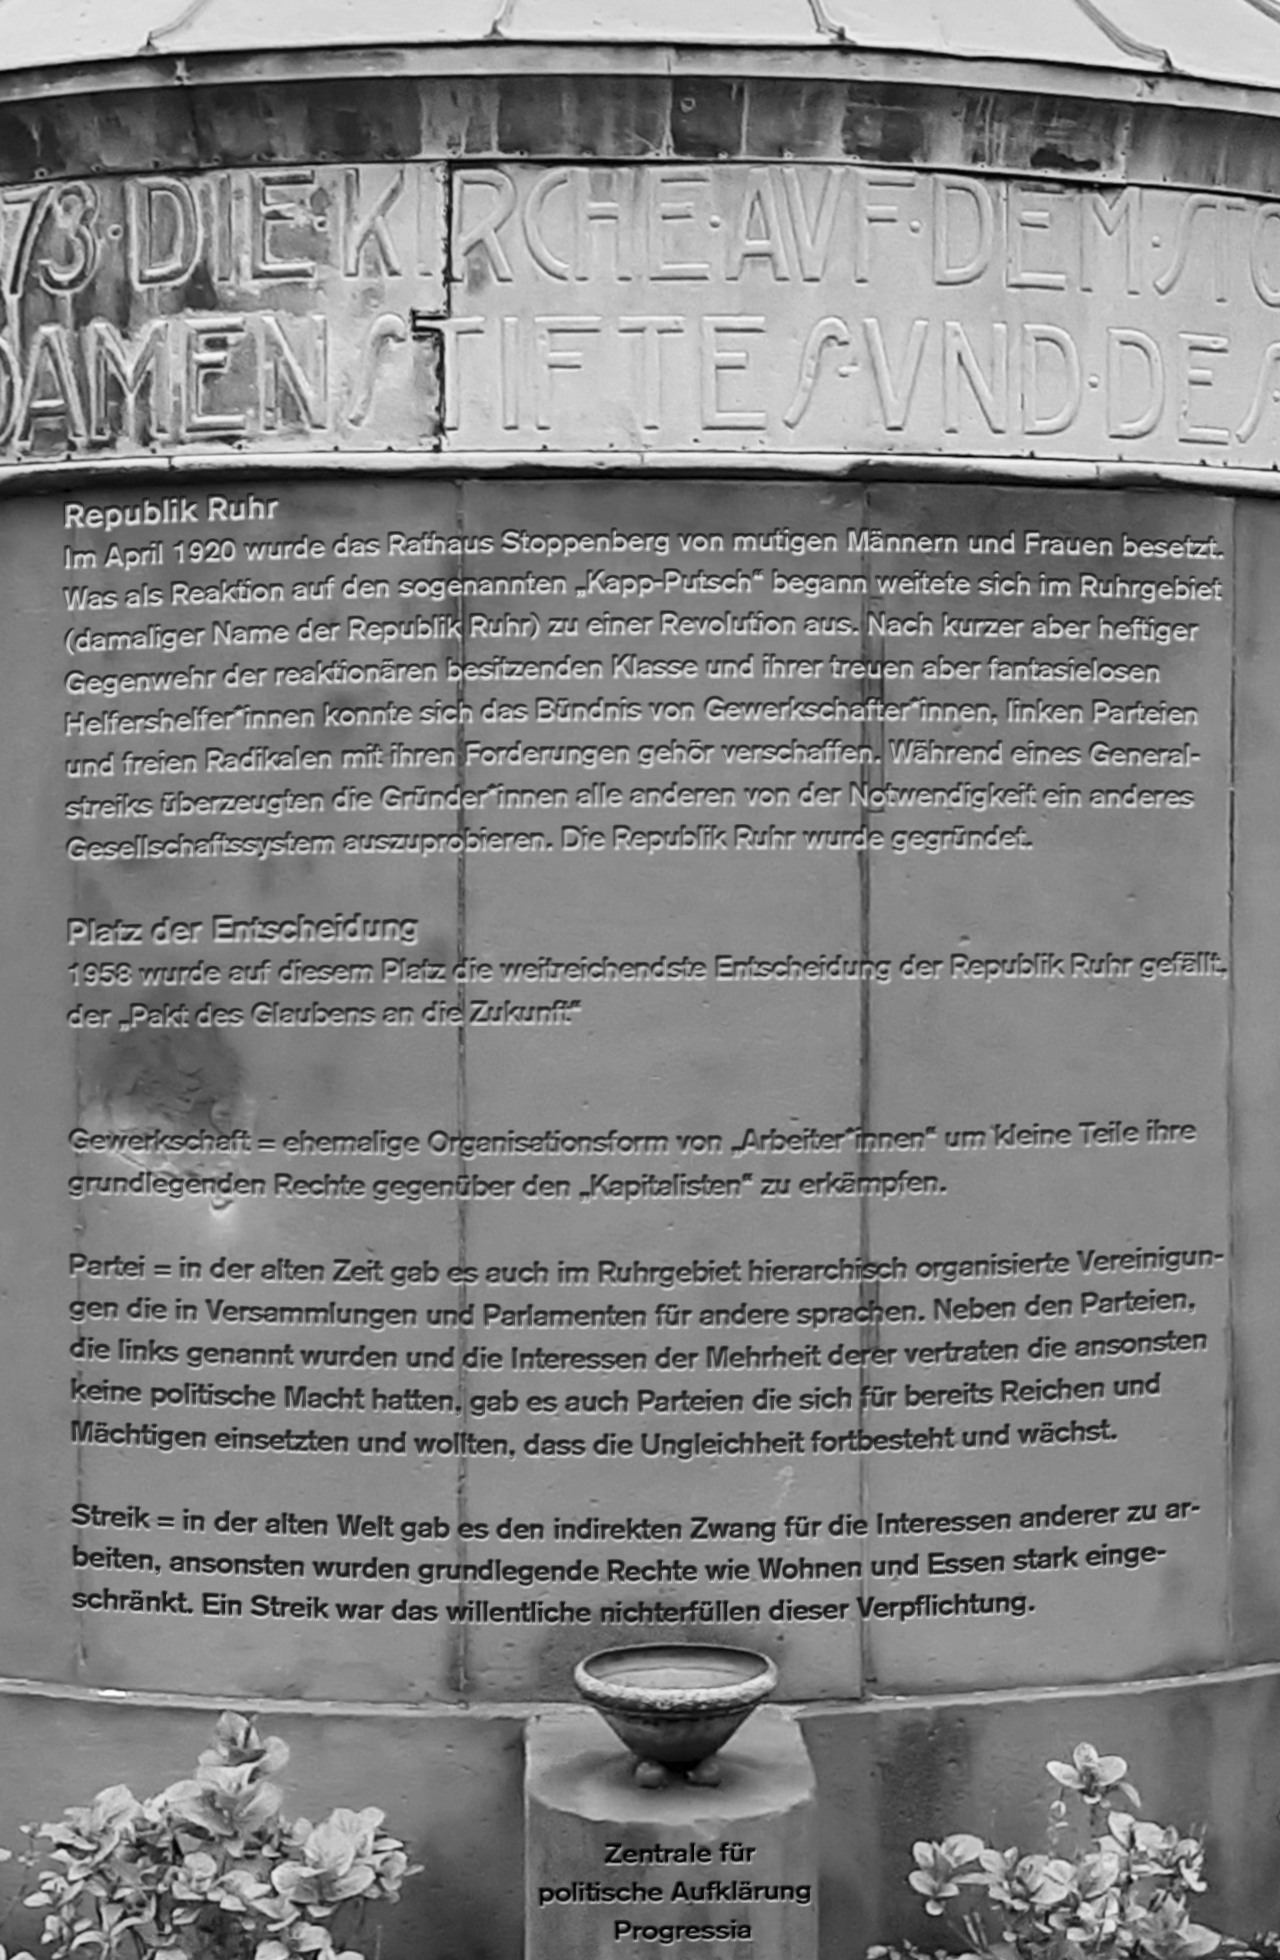 73·DIE·KIRCHE·AVF·DEM·STO
DAMENSTIFTES·VND·DES
Republik Ruhr
Im April 1920 wurde das Rathaus Stoppenberg von mutigen Männern und Frauen besetzt.
Was als Reaktion auf den sogenannten „Kapp-Putsch“ begann weitete sich im Ruhrgebiet
(damaliger Name der Republik Ruhr) zu einer Revolution aus. Nach kurzer aber heftiger
Gegenwehr der reaktionären besitzenden Klasse und ihrer treuen aber fantasielosen
Helfershelfer*innen konnte sich das Bündnis von Gewerkschafter*innen, linken Parteien
und freien Radikalen mit ihren Forderungen gehör verschaffen. Während eines General-
streiks überzeugten die Gründer*innen alle anderen von der Notwendigkeit ein anderes
Gesellschaftssystem auszuprobieren. Die Republik Ruhr wurde gegründet.
Platz der Entscheidung
1958 wurde auf diesem Platz die weitreichendste Entscheidung der Republik Ruhr gefällt,
der „Pakt des Glaubens an die Zukunft“
Gewerkschaft = ehemalige Organisationsform von „Arbeiter*innen“ um kleine Teile ihre
grundlegenden Rechte gegenüber den „Kapitalisten“ zu erkämpfen.
Partei = in der alten Zeit gab es auch im Ruhrgebiet hierarchisch organisierte Vereinigun-
gen die in Versammlungen und Parlamenten für andere sprachen. Neben den Parteien,
die links genannt wurden und die Interessen der Mehrheit derer vertraten die ansonsten
keine politische Macht hatten, gab es auch Parteien die sich für bereits Reichen und
Mächtigen einsetzten und wollten, dass die Ungleichheit fortbesteht und wächst.
Streik = in der alten Welt gab es den indirekten Zwang für die Interessen anderer zu ar-
beiten, ansonsten wurden grundlegende Rechte wie Wohnen und Essen stark einge-
schränkt. Ein Streik war das willentliche nichterfüllen dieser Verpflichtung.
Zentrale für
politische Aufklärung
Progressia